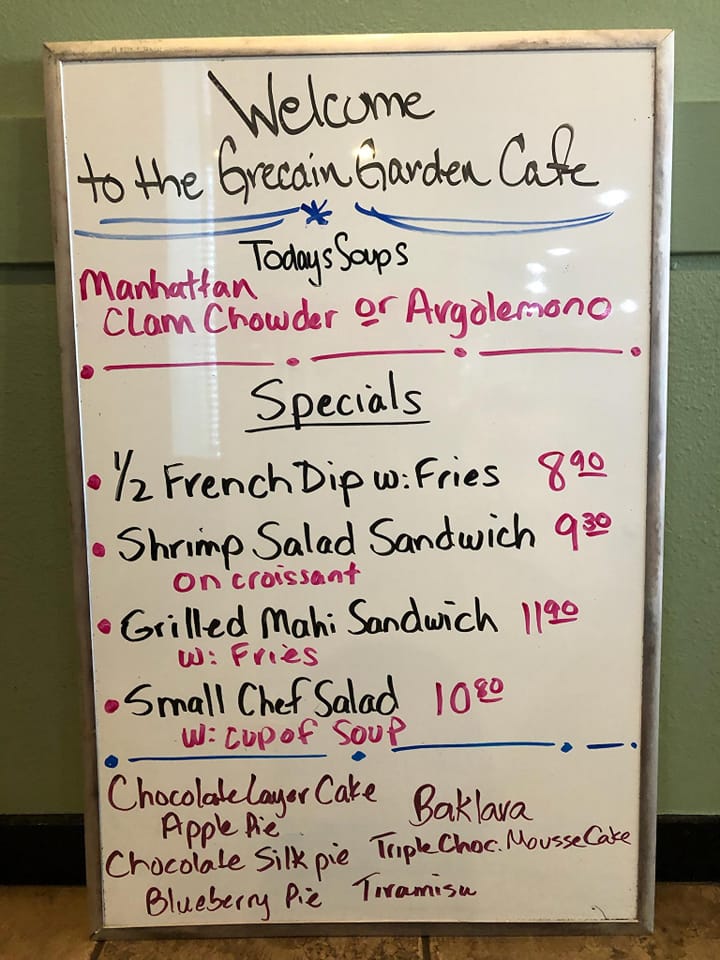 Welcome
to the Grecain Garden Cafe
Todays Soups
Manhattan
Clam Chowder or Argolemono
Specials
1/2 French Dip w: Fries 8 90
Shrimp Salad Sandwich 9 30
on croissant
Grilled Mahi Sandwich 11 90
w: Fries
Small Chef Salad 10 80
w: cup of Soup
Chocolate Layer Cake
Apple Pie
Chocolate Silk pie
Blueberry Pie
Baklava
Triple Choc. Mousse Cake
Tiramisu